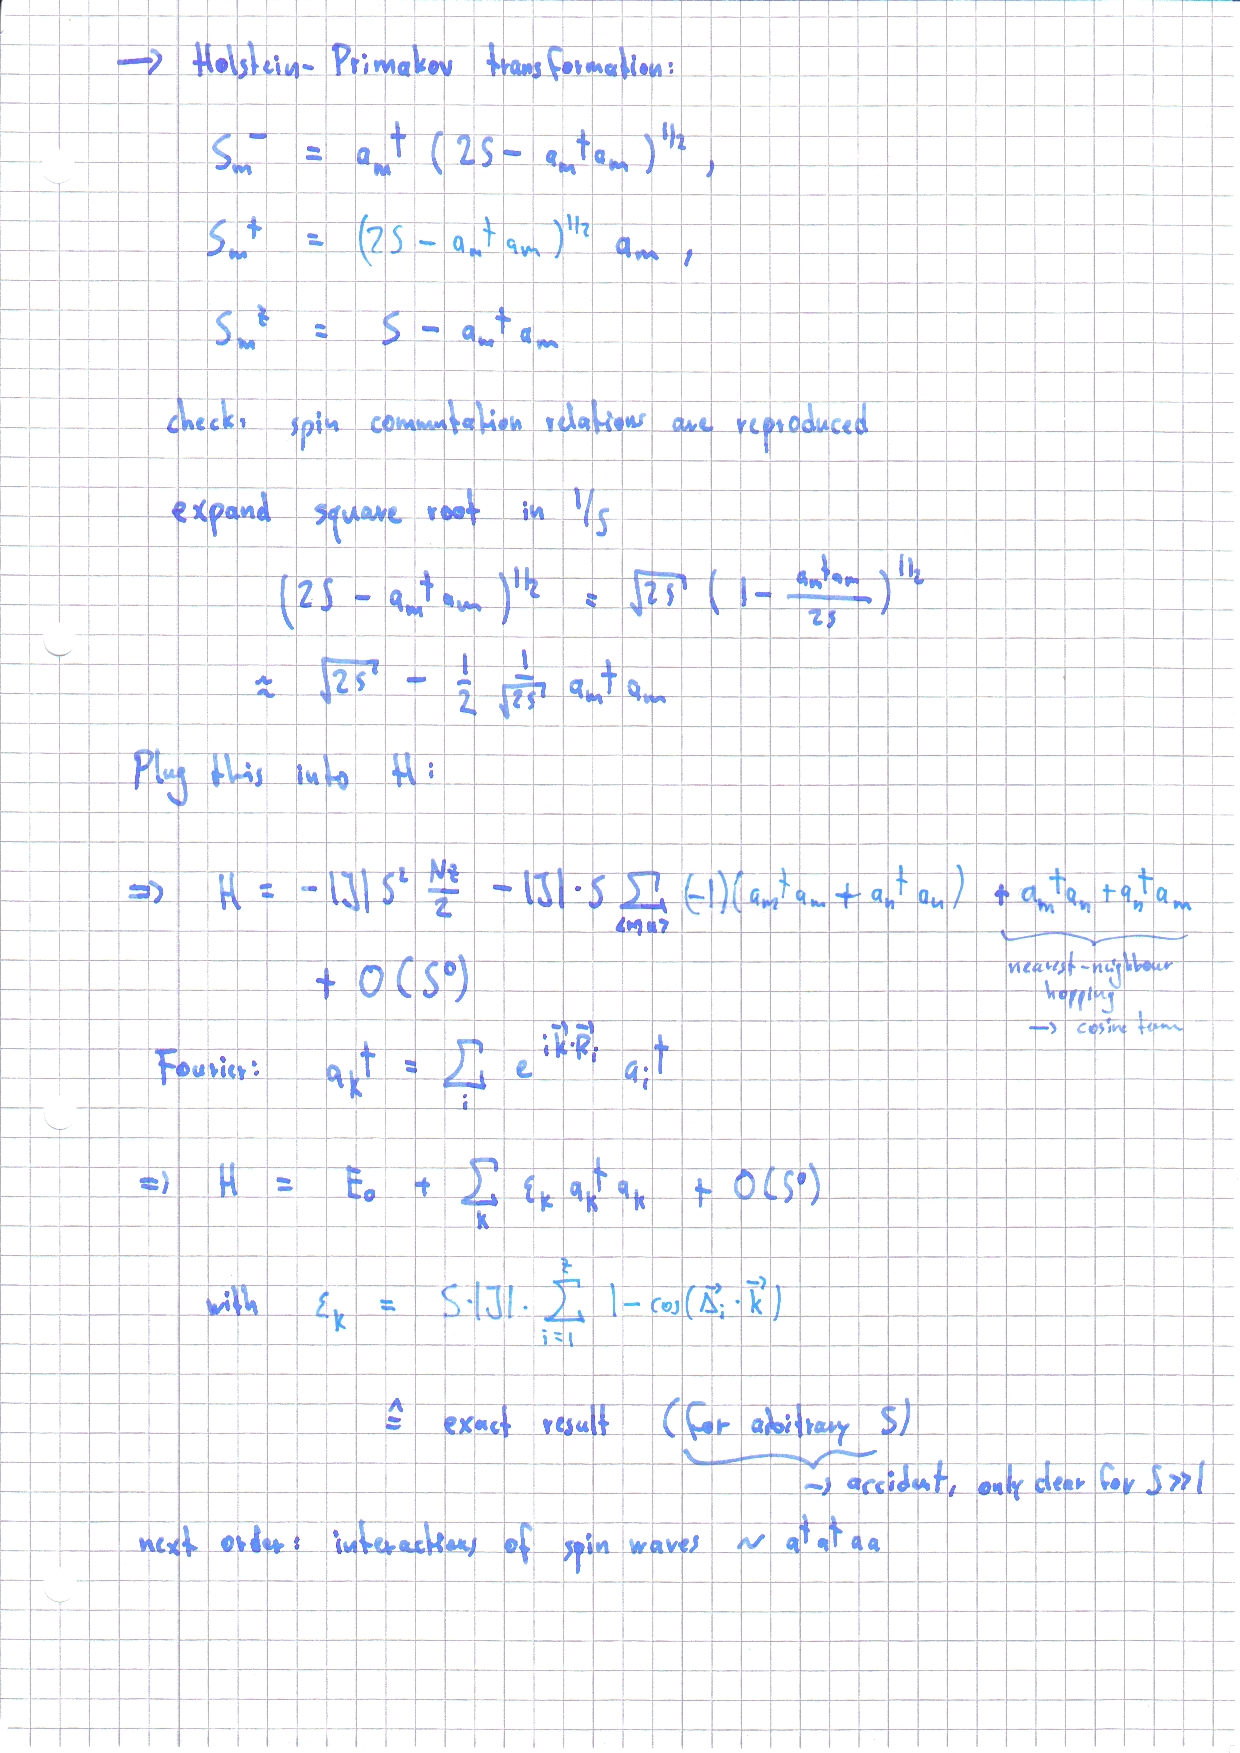 → Holstein-Primakov transformation:
S_m^- = a_m^† (2S - a_m^† a_m)^{1/2} ,
S_m^+ = (2S - a_m^† a_m)^{1/2} a_m ,
S_m^z = S - a_m^† a_m
check: spin commutation relations are reproduced
expand square root in 1/S
(2S - a_m^† a_m)^{1/2} = √2S (1 - a_m^† a_m / 2S)^{1/2}
≈ √2S - 1/2 1/√2S a_m^† a_m
Plug this into H:
⇒ H = -|J| S² Nz/2 - |J|·S Σ_{<mn>} (-1)(a_m^† a_m + a_n^† a_n) + a_m^† a_n + a_n^† a_m
nearest-neighbour
hopping
→ cosine term
+ O(S⁰)
Fourier: a_k^† = Σ_i e^{i\vec{k}·\vec{R}_i} a_i^†
⇒ H = E_0 + Σ_k ε_k a_k^† a_k + O(S⁰)
with ε_k = S·|J|· Σ_{i=1}^{z} 1 - cos(\vec{Δ}_i · \vec{k})
≙ exact result (for arbitrary S)
→ accident, only clear for S>>1
next order: interactions of spin waves ~ a^† a^† a a